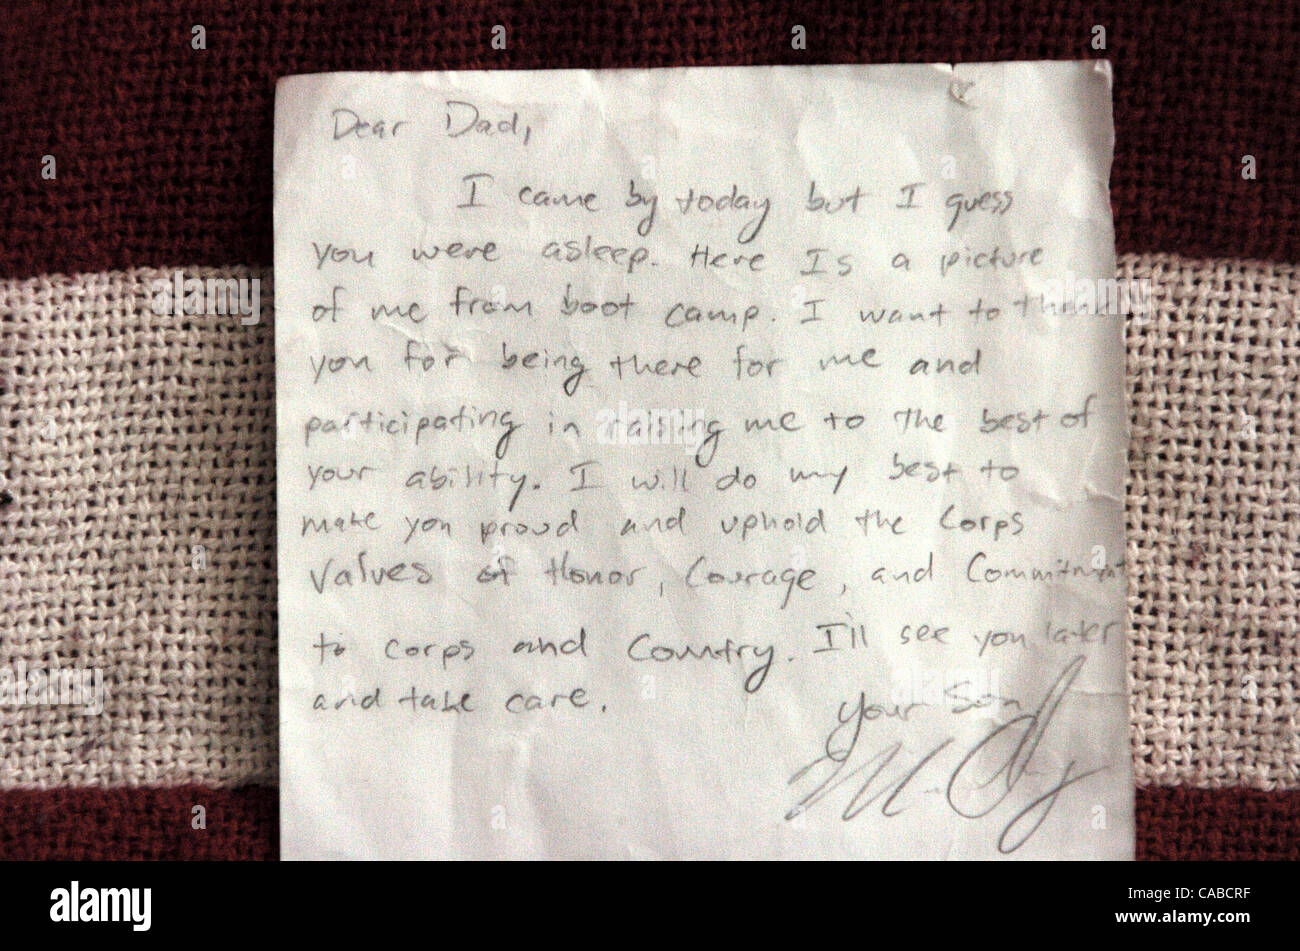 Dear Dad,
I came by today but I guess
you were asleep. Here Is a picture
of me from boot camp. I want to thank
you for being there for me and
participating in raising me to the best of
your ability. I will do my best to
make you proud and uphold the Corps
Values of Honor, Courage, and Commitment
to Corps and Country. I'll see you later
and take care.
Your Son
alamy
Image ID: CABCRF
www.alamy.com